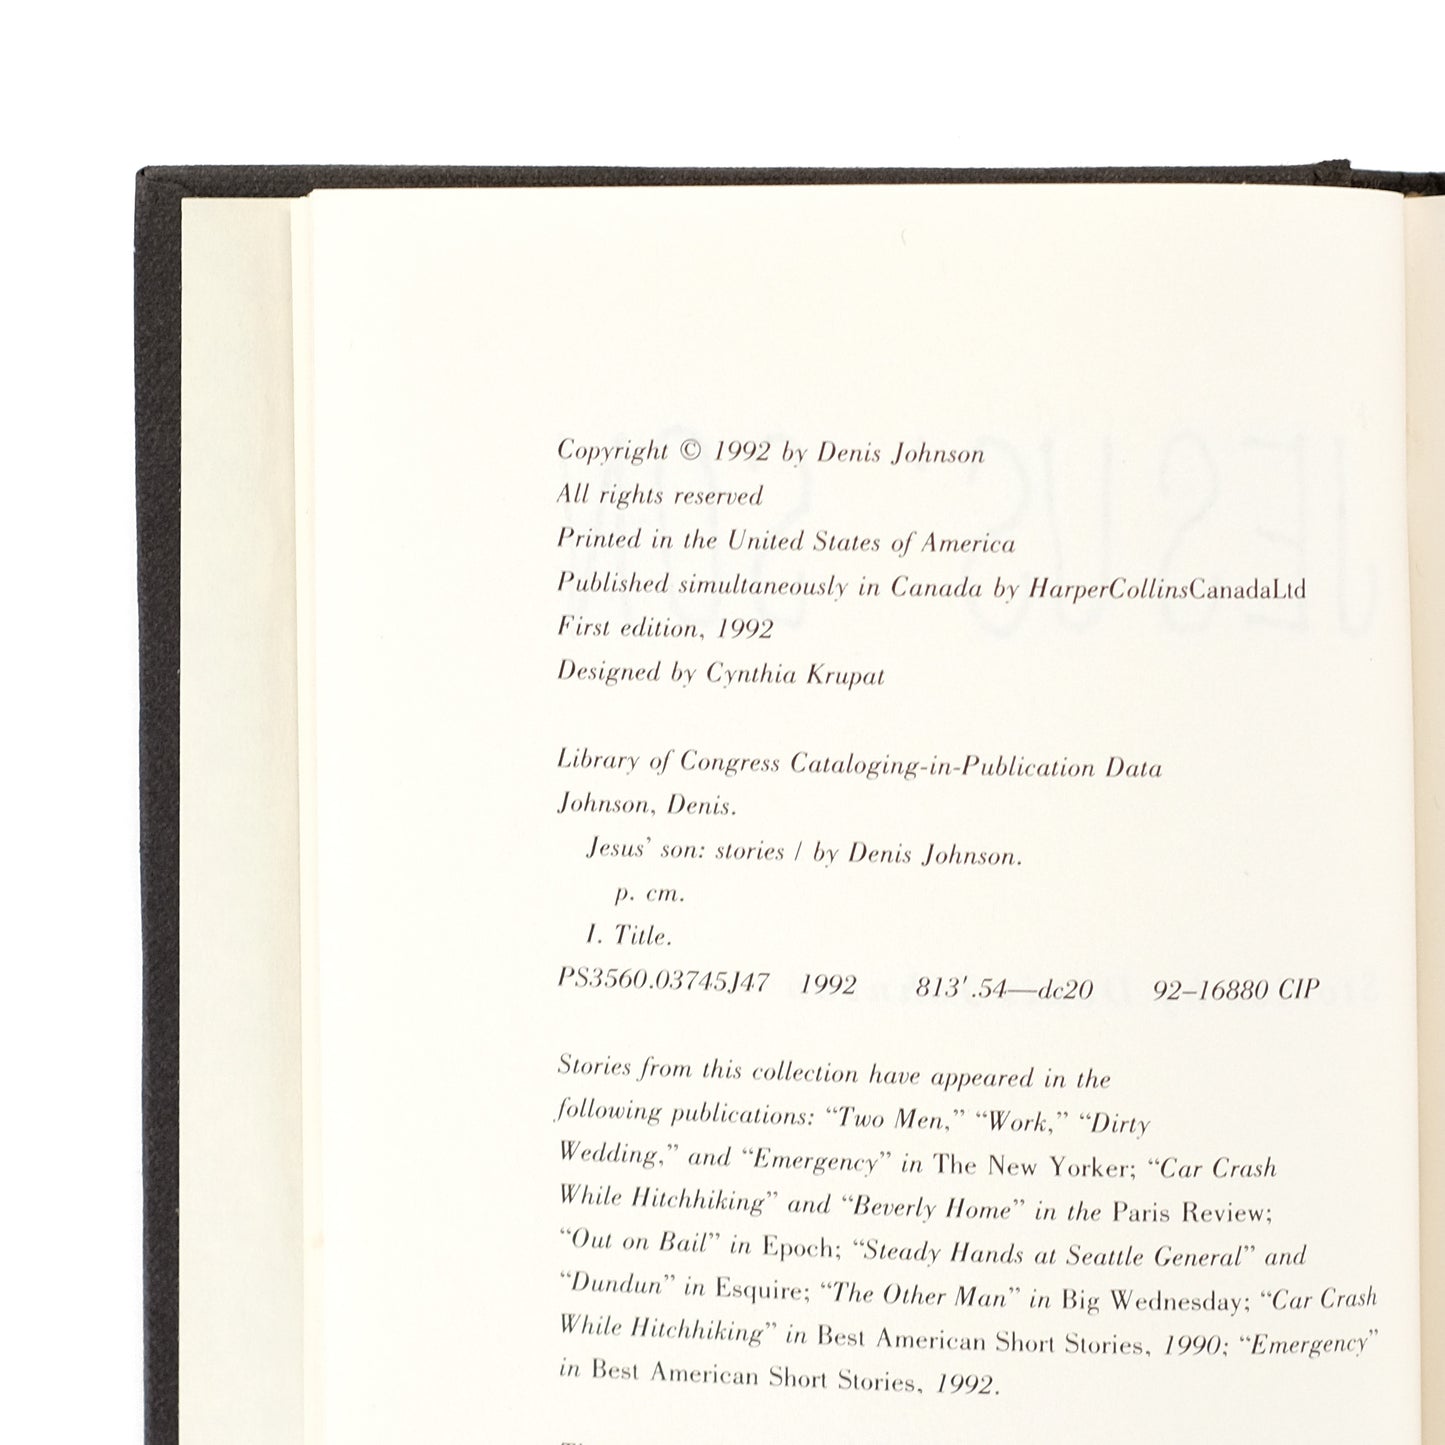 Copyright © 1992 by Denis Johnson
All rights reserved
Printed in the United States of America
Published simultaneously in Canada by HarperCollinsCanadaLtd
First edition, 1992
Designed by Cynthia Krupat
Library of Congress Cataloging-in-Publication Data
Johnson, Denis.
Jesus’ son: stories / by Denis Johnson.
p. cm.
I. Title.
PS3560.O3745J47 1992 813′.54—dc20 92–16880 CIP
Stories from this collection have appeared in the
following publications: “Two Men,” “Work,” “Dirty
Wedding,” and “Emergency” in The New Yorker; “Car Crash
While Hitchhiking” and “Beverly Home” in the Paris Review;
“Out on Bail” in Epoch; “Steady Hands at Seattle General” and
“Dundun” in Esquire; “The Other Man” in Big Wednesday; “Car Crash
While Hitchhiking” in Best American Short Stories, 1990; “Emergency”
in Best American Short Stories, 1992.